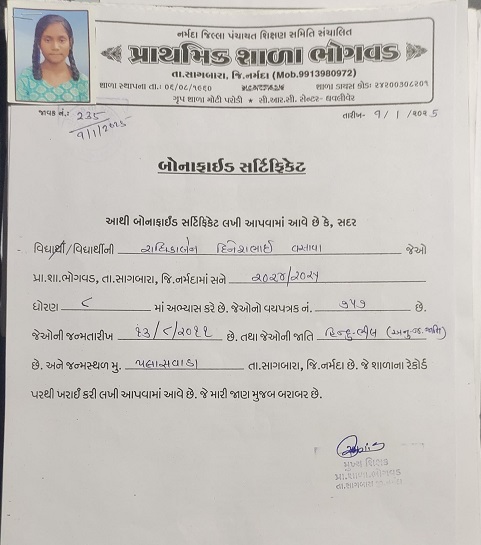 નર્મદા જિલ્લા પંચાયત શિક્ષણ સમિતિ સંચાલિત
પ્રાથમિક શાળા ભોગવડ
તા.સાગબારા, જિ.નર્મદા (Mob.9913980972)
શાળા સ્થાપના તા.: ૦૬/૦૮/૧૯૬૦ શાળા ડાયસ કોડ: ૨૪૨૦૦૩૦૮૨૦૧
ગૃપ શાળા મોટી પરોઢી ★ સી.આર.સી. સેન્ટર- ધવલીવેર
જાવક નં.: 235 તારીખ- ૧/૧/૨૦૨૫
૧/૧/૨૦૨૫
બોનાફાઈડ સર્ટિફિકેટ
આથી બોનાફાઈડ સર્ટિફિકેટ લખી આપવામાં આવે છે કે, સદર
વિદ્યાર્થી/વિદ્યાર્થીની દિનેશભાઈ વસાવા જેઓ
પ્રા.શા.ભોગવડ, તા.સાગબારા, જિ.નર્મદામાં સને ૨૦૨૪/૨૦૨૫
ધોરણ ૮ માં અભ્યાસ કરે છે. જેઓનો વયપત્રક નં. ૭૫૭ છે.
જેઓની જન્મતારીખ ૧૩/૮/૨૦૧૧ છે. તથા જેઓની જાતિ હિન્દુ-ભીલ (અનુ.જ.જાતિ)
છે. અને જન્મસ્થળ મુ. પલાસવાડા તા.સાગબારા, જિ.નર્મદા છે. જે શાળાના રેકોર્ડ
પરથી ખરાઈ કરી લખી આપવામાં આવે છે. જે મારી જાણ મુજબ બરાબર છે.
મુખ્ય શિક્ષક
પ્રા.શાળા.ભોગવડ
તા.સાગબારા